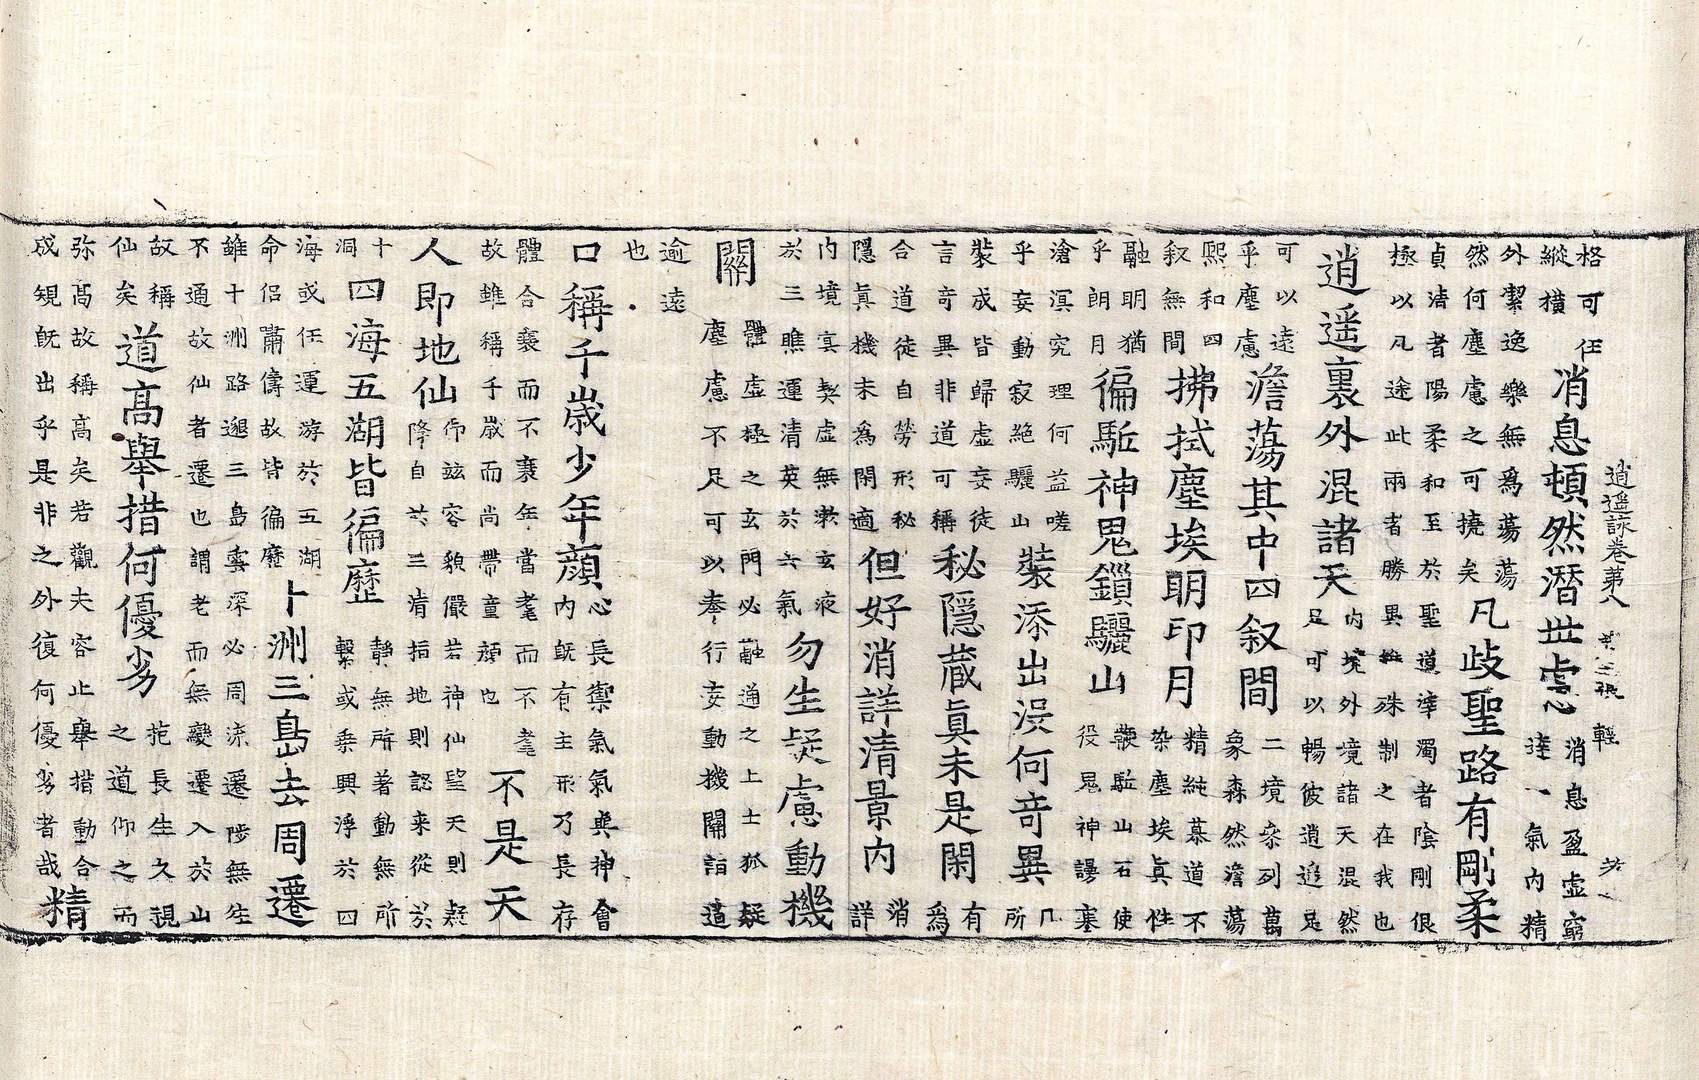 逍遥詠卷第八 第三張 輕
格可任
縱橫
消息頓然潛世慮
消息盈虛窮
達一氣內精
外潔逸樂無爲蕩蕩
然何塵慮之可撓矣
凡歧聖路有剛柔
貞淸者陽柔和至於聖道滓濁者陰剛佷
極以凡途此兩者勝異雖殊制之在我也
逍遥裏外混諸天
內境外境諸天混然
足可以暢彼逍遥足
可以遠
乎塵慮
澹蕩其中四叙間
二境森列萬
象森然澹蕩
熙和四
叙無間
拂拭塵埃明印月
精純慕道不
染塵埃真性
融明猶
乎朗月
徧駈神鬼鎻驪山
鞭駈山石使
役鬼神謾塞
滄溟究理何益嗟
乎妄動寂絶驪山
裝添出沒何竒異
凡
所
裝成皆歸虛妄徒
言竒異非道可稱
秘隱藏眞未是閑
有
爲
合道徒自勞形秘
隱眞機未爲閑適
但好消詳清景內
消
詳
內境㝠契虛無漱玄液
於三瞧運清英於六氣
勿生疑慮動機
關
體虛極之玄門必融通之上士狐疑
塵慮不足可以奉行妄動機關詎遠
逾遠
也
口稱千歲少年顔
心長禦氣氣與神會
內旣有主形乃長存
體合衰而不衰年當耄而不耄
故雖稱千歲而尚帶童顔也
不是天
人即地仙
玆容貌儼若神仙望天則疑
降自於三淸指地則認來從於
十
洞
四海五湖皆徧歷
靜無所著動無所
繫或乘興浮於四
海或任運游於五湖
命侣嘯儔故皆徧歷
十洲三島去周遷
雖十洲路邈三島雲深必周流遷陟無生
不通故仙者遷也謂老而無變遷入於山
故稱
仙矣
道高舉措何優劣
長生久視
之道仰之而
弥高故稱高矣若觀夫容止舉措動合
成規旣出乎是非之外復何優劣者哉
精